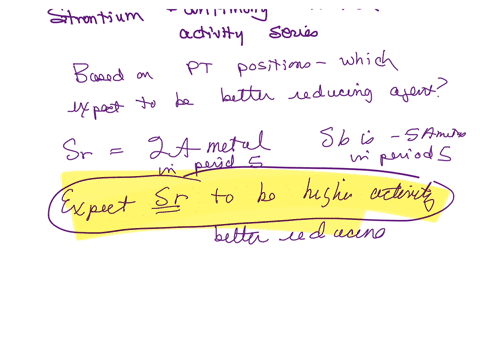 Strontium
activity series
Based on PT positions - which
expect to be better reducing agent?
Sr = 2A metal Sb is - 5A metal
in period 5 in period 5
Expect Sr to be higher activity
better reducing